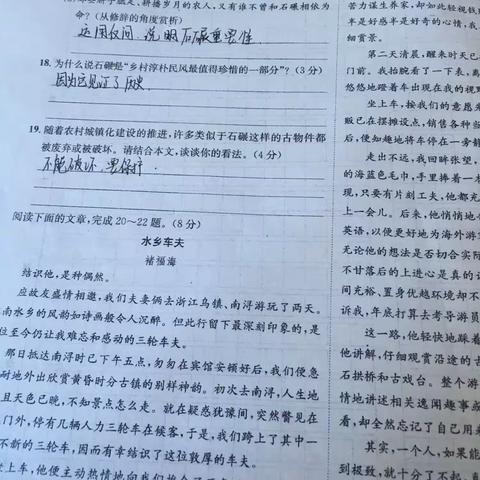 耕播岁月的农人,又有谁不曾和石碾相依为
命?(从修辞的角度赏析)
运用反问,说明石碾重要性.
18. 为什么说石碾是“乡村淳朴民风最值得珍惜的一部分”?(3分)
因为它见证了历史
19. 随着农村城镇化建设的推进,许多类似于石碾这样的古物件都
被废弃或被破坏。请结合本文,谈谈你的看法。(4分)
不能破坏,要保护.
阅读下面的文章,完成20~22题。(8分)
水乡车夫
褚福海
结识他,是种偶然。
应故友盛情相邀,我们夫妻俩去浙江乌镇、南浔游玩了两天。
南水乡的风韵如诗画般令人沉醉。但此行留下最深刻印象的,是
位至今仍让我难忘和感动的三轮车夫。
那日抵达南浔时已下午五点,匆匆在宾馆安顿好后,我们便急
耐地外出欣赏黄昏时分古镇的别样神韵。初次去南浔,人生地
且天色已晚,不知景点怎么走。就在疑惑犹豫间,突然瞥见在
门外,停有几辆人力三轮车在候客,于是,我们跨上了其中一
不新的三轮车,因而有幸结识了这位敦厚的车夫。
上车,他便主动热情地向我们
苦力谋生养家,却如此轻
半是好感半是好奇的心情,我
细赏景。
第二天清晨,醒来时天已
门前。我抬腕看了一下表,离
悠悠地蹬着车出现在我的视野
坐上车,按我们的意愿来
贩已在摆摊设点,销售各种当
后,便知趣地将车停在一旁静
走出不远,我回眸张望,
的海蓝色毛巾,手里捧着一本
现,只要有片刻工夫,他都充
上一会儿。后来,他悄悄地
英语,以便更好地为海外游
无论他的想法是否切合实际
不甘落后的上进心是真的
间充裕、置身优越环境却不
诉我,年底打算去考导游员
这一路,他轻快地踩着
他讲解,仔细观赏沿途的古
石拱桥和古戏台。整个游
情地讲述相关逸闻趣事或
看,却全然忘记了自己用
其实,一个人,如果能
到极致,就十分了不起,真